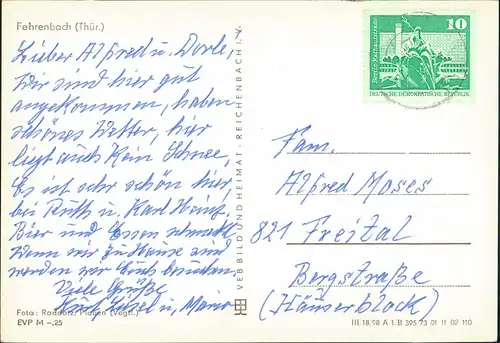 Fehrenbach (Thür.)
Lieber Alfred u. Dorle,
Wir sind hier gut
angekommen, haben
schönes Wetter, hier
liegt auch kein Schnee,
Es ist sehr schön hier,
bei Ruth u. Karl Heinz.
Bier und Essen schmeckt
Wenn wir zu Hause sind
werden wir Euch besuchen.
Viele Grüße
Kurt, Lisel u,
Foto: Raddatz, Plauen (Vogtl.)
EVP M –,25
VEB BILD UND HEIMAT · REICHENBACH i. V.
10
DEUTSCHE DEMOKRATISCHE REPUBLIK
Fam.
Alfred Moses
821 Freital
Bergstraße
(Häuserblock)
III. 18, 98 A 1/B 395/73 01 11 02 110